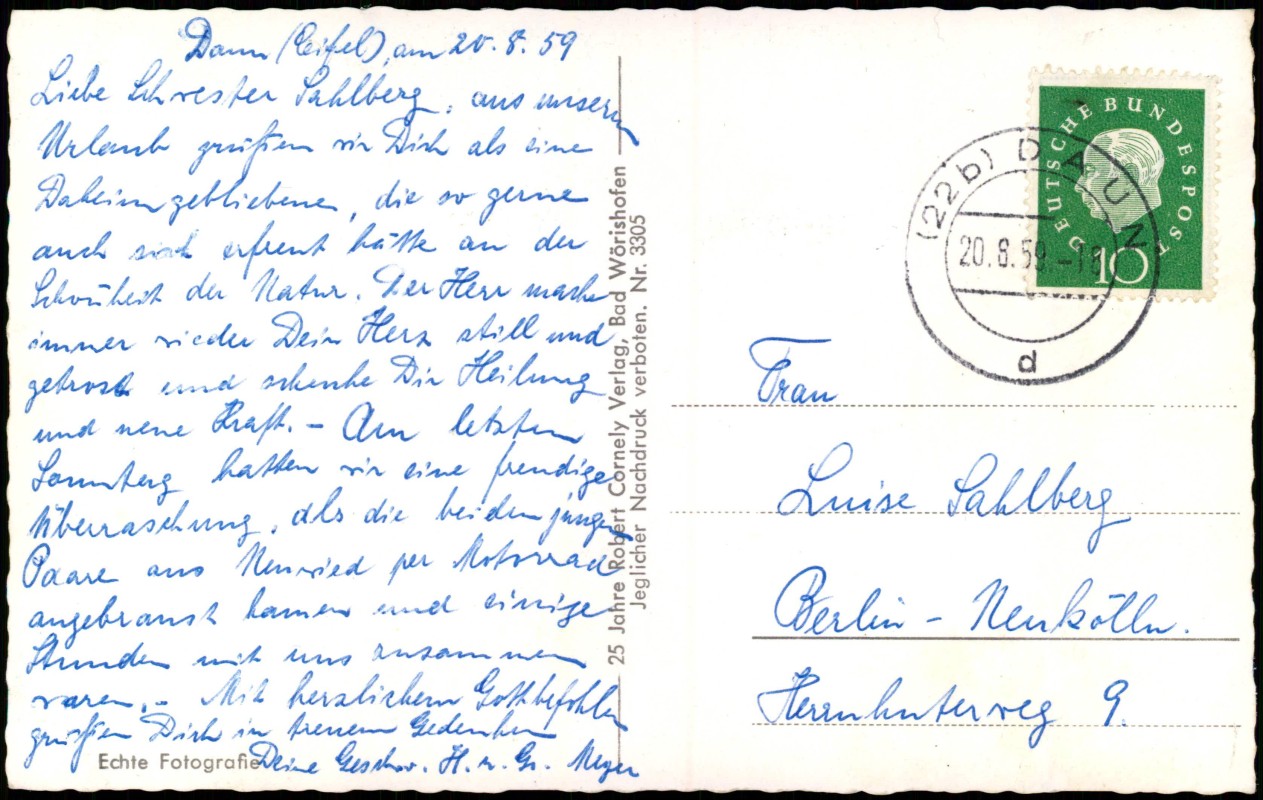 Daun (Eifel), am 20.8.59
Liebe Schwester Sahlberg, aus unserm
Urlaub grüßen wir Dich als eine
Daheimgebliebene, die so gerne
auch sich erfreut hätte an der
Schönheit der Natur. Der Herr mache
immer wieder Dein Herz still und
getrost und schenke Dir Heilung
und neue Kraft. - Am letzten
Sonntag hatten wir eine freudige
Überraschung, als die beiden jungen
Paare aus Neuwied per Motorrad
angebraust kamen und einige
Stunden mit uns zusammen
waren. - Mit herzlichem Gottbefohlen
grüßen Dich in treuem Gedenken
Deine Geschw. H. u. Gr. Meyer
Echte Fotografie
25 Jahre Robert Cornely Verlag, Bad Wörishofen
Jeglicher Nachdruck verboten. Nr. 3305
DEUTSCHE BUNDESPOST
10
(22b) DAUN
20.8.59.-18
d
Frau
Luise Sahlberg
Berlin - Neukölln.
Herrnhuterweg 9.